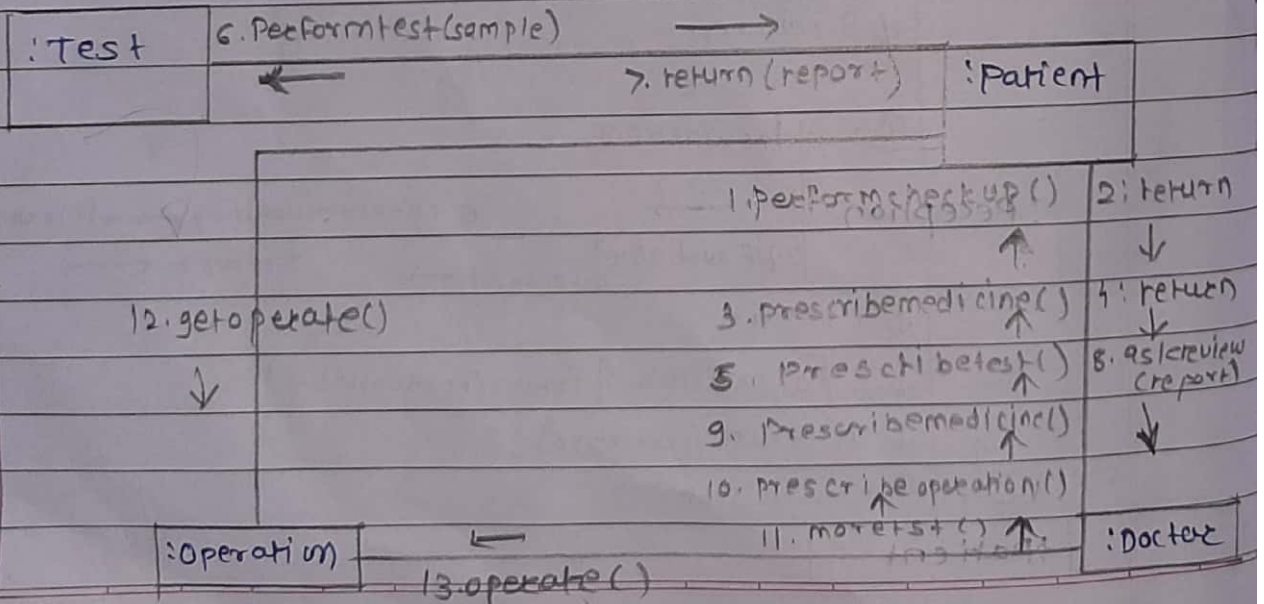 :Test
6. Performtest(sample)
7. return (report)
:Patient
1. performcheckup()
2: return
12. getoperate()
3. prescribemedicine()
4: return
5. Prescribetest()
8. askreview
(report)
9. Prescribemedicine()
10. prescribeoperation()
11. moretst()
:Operation
:Docter
13. operate()